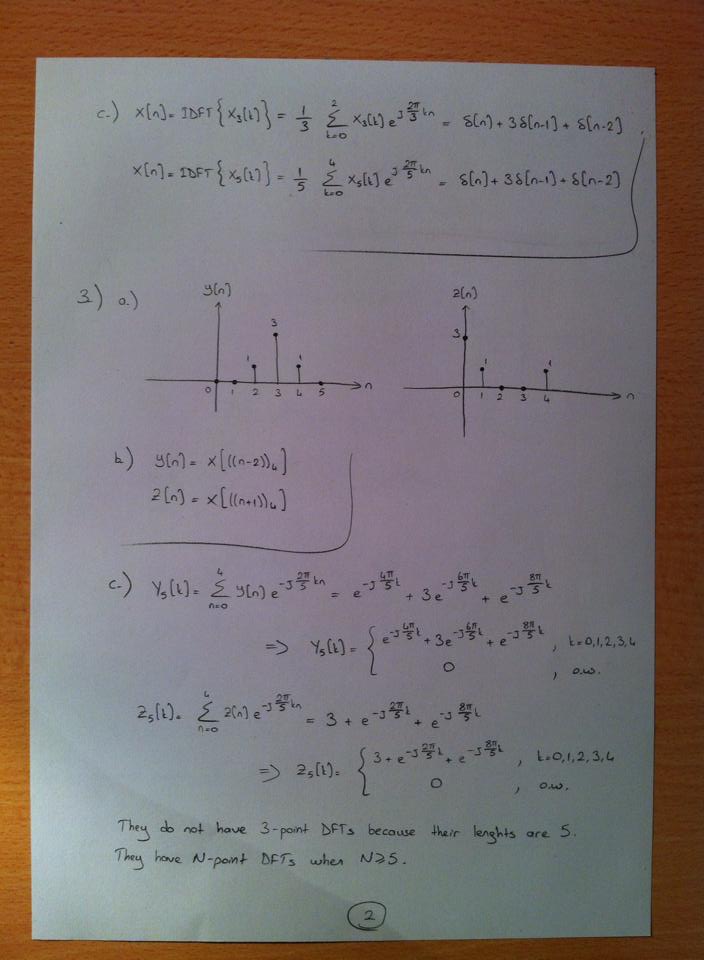 c.) x[n] = IDFT{X₃[k]} = 1/3 Σ_{k=0}^{2} X₃[k] e^{j 2π/3 kn} = δ[n] + 3δ[n-1] + δ[n-2]
x[n] = IDFT{X₅[k]} = 1/5 Σ_{k=0}^{4} X₅[k] e^{j 2π/5 kn} = δ[n] + 3δ[n-1] + δ[n-2]
3) a.)
y[n]
3
1 1
0 1 2 3 4 5 n
z[n]
3
1 1
0 1 2 3 4 n
b.) y[n] = x[((n-2))₄]
z[n] = x[((n+1))₄]
c.) Y₅[k] = Σ_{n=0}^{4} y[n] e^{-j 2π/5 kn} = e^{-j 4π/5 k} + 3e^{-j 6π/5 k} + e^{-j 8π/5 k}
=> Y₅[k] = { e^{-j 4π/5 k} + 3e^{-j 6π/5 k} + e^{-j 8π/5 k} , k=0,1,2,3,4
0 , o.w.
Z₅[k] = Σ_{n=0}^{4} z[n] e^{-j 2π/5 kn} = 3 + e^{-j 2π/5 k} + e^{-j 8π/5 k}
=> Z₅[k] = { 3 + e^{-j 2π/5 k} + e^{-j 8π/5 k} , k=0,1,2,3,4
0 , o.w.
They do not have 3-point DFTs because their lenghts are 5.
They have N-point DFTs when N≥5.
2